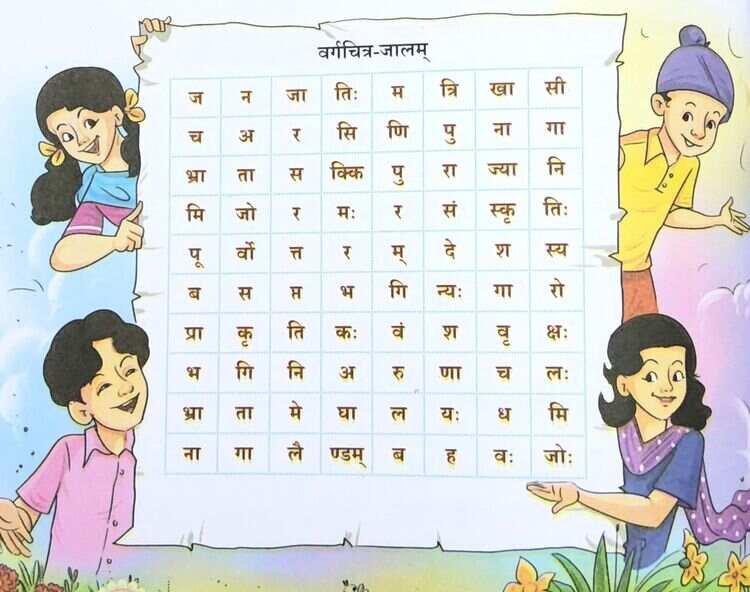 वर्गचित्र-जालम्
ज न जा तिः म त्रि खा सी
च अ र सि णि पु ना गा
भ्रा ता स क्कि पु रा ज्या नि
मि जो र मः र सं स्कृ तिः
पू र्वो त्त र म् दे श स्य
ब स प्त भ गि न्यः गा रो
प्रा कृ ति कः वं श वृ क्षः
भ गि नि अ रु णा च लः
भ्रा ता मे घा ल यः ध मि
ना गा लै ण्डम् ब ह वः जोः